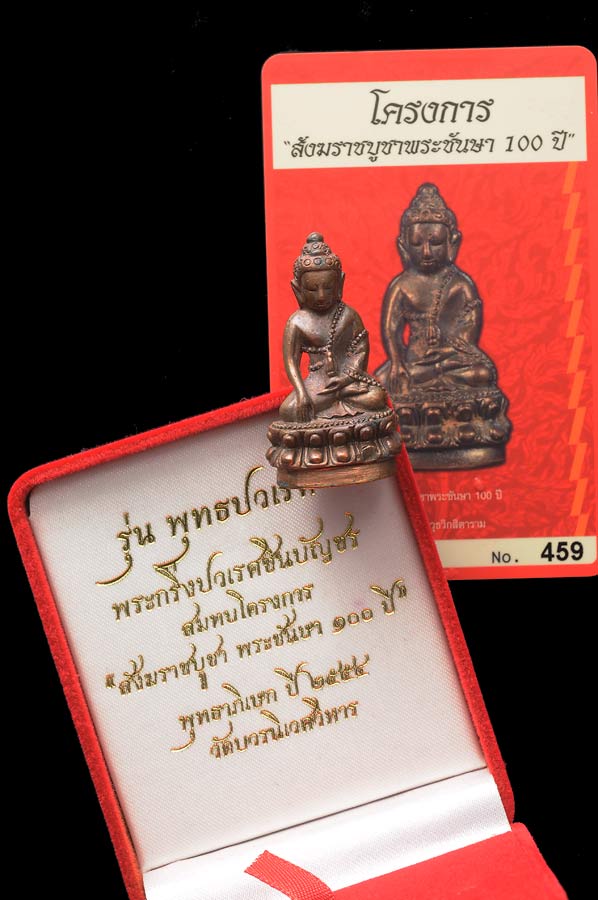 โครงการ
"สังฆราชบูชาพระชันษา 100 ปี"
พระชันษา 100 ปี
No. 459
รุ่น พุทธปวเรศ
พระกริ่งปวเรศชินบัญชร
สมทบโครงการ
"สังฆราชบูชา พระชันษา ๑๐๐ ปี"
พุทธาภิเษก ปี ๒๕๕๔
วัดบวรนิเวศวิหาร